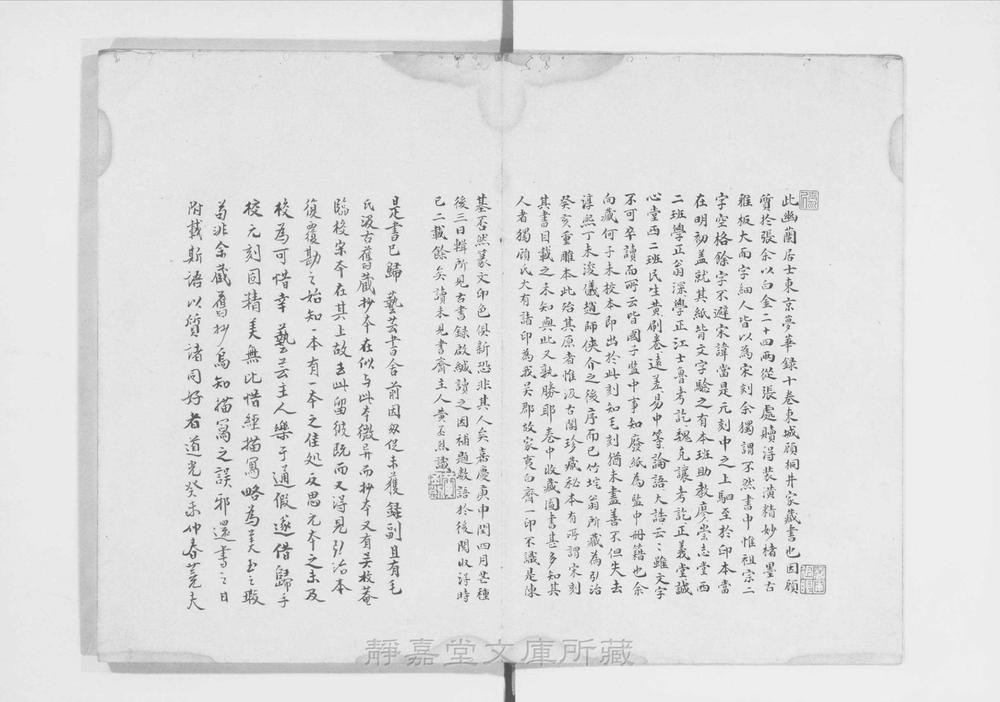 此幽蘭居士東京夢華錄十卷東城顧桐井家藏書也因顧
質於張余以白金二十四兩從張處贖得裝潢精妙楮墨古
雅板大而字細人皆以為宋刻余獨謂不然書中惟祖宗二
字空格餘字不避宋諱當是元刻中之上駟至於印本當
在明初蓋就其紙背文字驗之有本班助教廖崇志堂西
二班學正翁深學正江士魯考訖魏克讓考訖正義堂誠
心堂西二班民生黃刷卷遠差易中等論語大誥云云雖文字
不可卒讀而所云皆國子監中事知廢紙為監中冊籍也余
向藏何子未校本即出於此刻知毛刻猶未盡善不但失去
淳熙丁未浚儀趙師俠介之後序而已竹垞翁所藏為弘治
癸亥重雕本此殆其原者惟汲古閣珍藏秘本有所謂宋刻
其書目載之未知與此又孰勝耶卷中收藏圖書甚多知其
人者獨顧氏大有諸印為我吳郡故家夷白齋一印不識是陳
基否然篆文印色俱新恐非其人矣嘉慶庚申閏四月芒種
後三日輯所見古書錄啟緘讀之因補題數語於後閱收得時
已二載餘矣讀未見書齋主人黃丕烈識
是書已歸 藝芸書舍前因匆促未獲錄副且有毛
氏汲古舊藏抄本在似与此本微异而抄本又有吴枚菴
臨校宋本在其上故去此留彼既而又得見弘治本
復覆勘之始知一本有一本之佳処反思元本之未及
校為可惜幸 藝芸主人樂于通假遂借歸手
校元刻固精美無比惜經描寫略為美玉之瑕
苟非余藏舊抄烏知描寫之誤邪還書之日
附載斯語以質諸同好者道光癸未仲春蕘夫
靜嘉堂文庫所藏